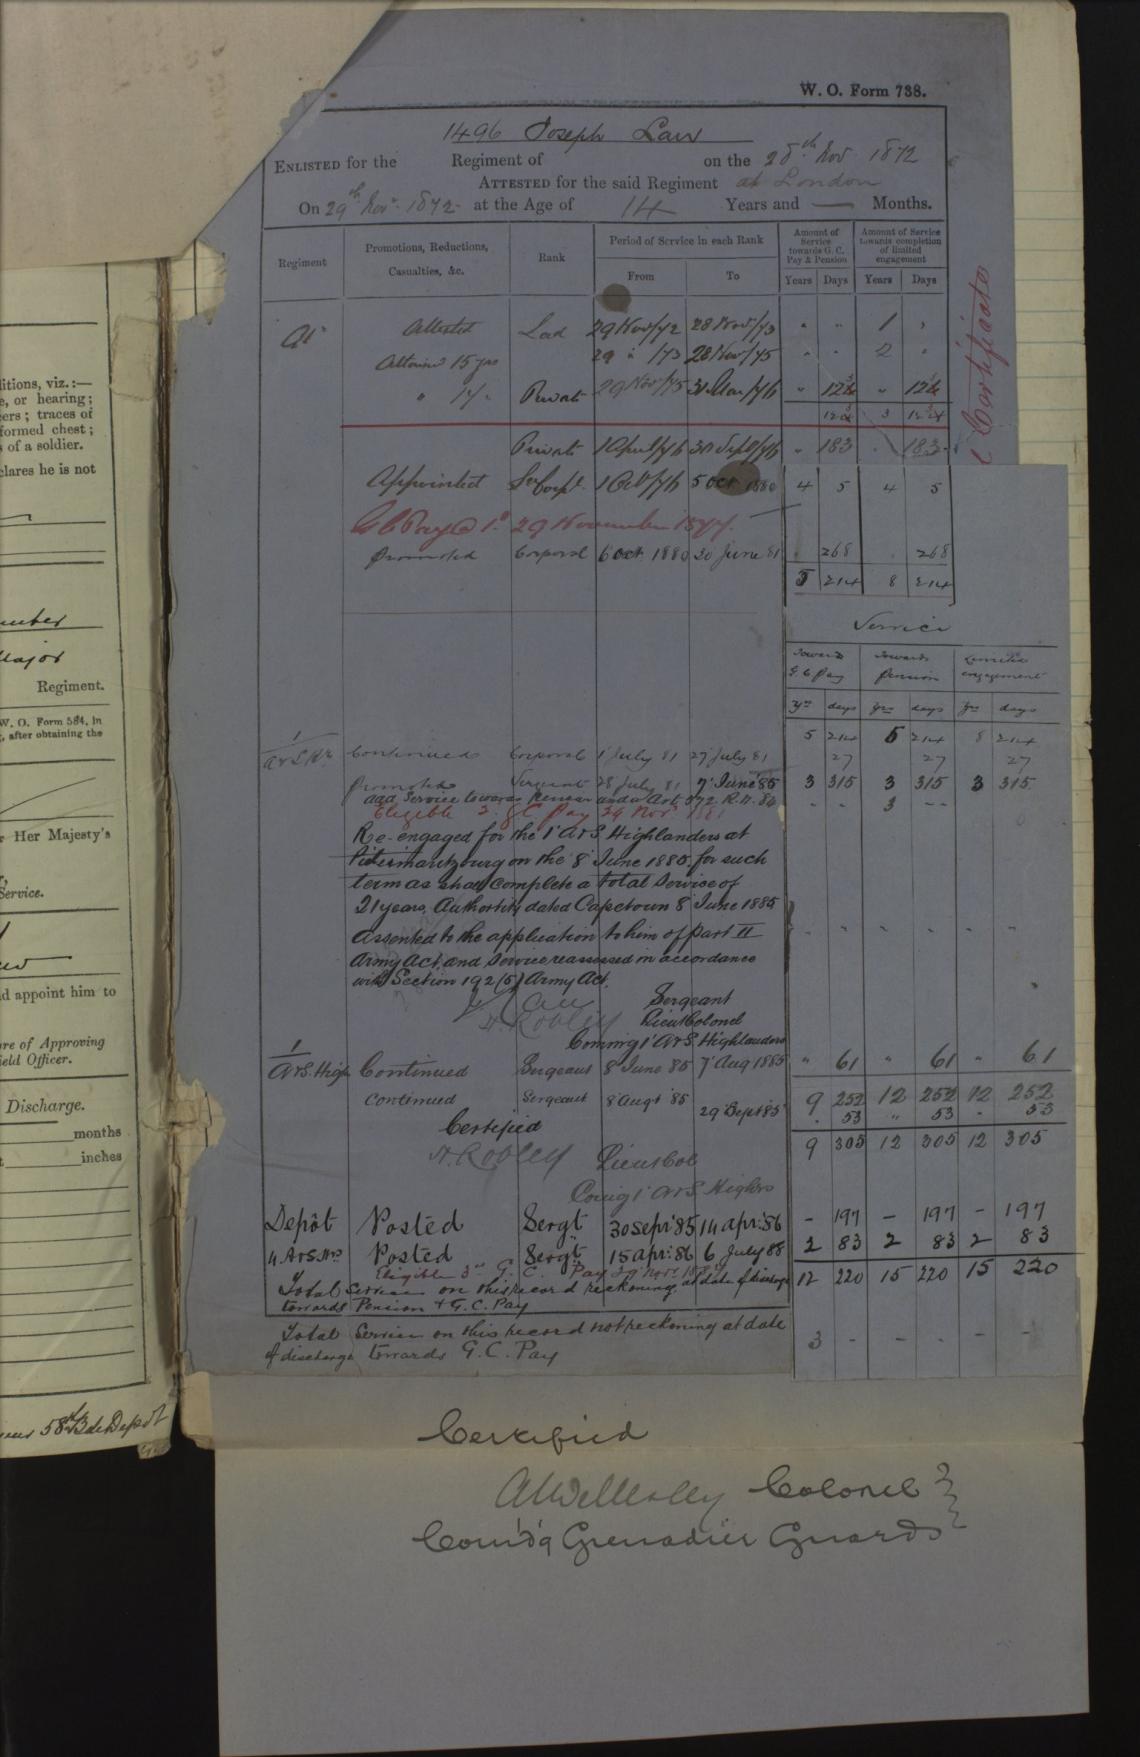 W. O. Form 738.
1496 Joseph Law
ENLISTED for the Regiment of on the 28th Nov. 1872
ATTESTED for the said Regiment at London
On 29th Nov. 1872 at the Age of 14 Years and — Months.
Regiment
Promotions, Reductions, Casualties, &c.
Rank
Period of Service in each Rank
From To
Amount of Service towards G. C. Pay & Pension
Years Days
Amount of Service towards completion of limited engagement
Years Days
Attested Lad 29 Nov/72 28 Nov/73 " " 1 "
Attained 15 yrs 29 " /73 28 Nov/75 " " 2 "
" 17 " Private 29 Nov/75 31 Mar/76 " 124 " 124
124 3 124
Private 1 April/76 30 Sept/76 " 183 . 183
Appointed 1 Oct/76 5 Oct 1880 4 5 4 5
G C Pay @ 1d 29 November 1877.
Promoted Corporal 6 Oct 1880 30 June 81 . 268 . 268
5 214 8 214
Certificate
Service
Towards G. C. Pay
Towards Pension
Limited engagement
Yrs days Yrs days Yrs days
5 214 5 214 8 214
1 A & S. Hrs Continued Corporal 1 July 81 27 July 81 27 27 27
Promoted Sergeant 28 July 81 7 June 85 3 315 3 315 3 315
add Service towards Pension under Art. 572 R.W. 84 - - 3 - -
Eligible 2 G C Pay 29 Nov 1881
Re-engaged for the 1 A & S. Highlanders at
Pietermaritzburg on the 8 June 1885. for such
term as shall complete a total service of
21 years, Authority dated Capetown 8 June 1885
Assented to the application to him of Part II
Army Act, and Service reassessed in accordance
with Section 192 (5) Army Act.
J Law Sergeant
H. Robley Lieut Colonel
Coming 1 A & S. Highlanders
1 A & S. High Continued Sergeant 8 June 85 7 Aug 1885 " 61 " 61 - 61
Continued Sergeant 8 Augt 85 29 Sept 85
9 252 12 252 12 252
. 53 " 53 - 53
Certified
9 305 12 305 12 305
H. Robley Lieut Col
Comg 1 A & S. Highrs
Depôt Posted Sergt 30 Sept: 85 14 Apr: 86 - 197 - 197 - 197
4 A & S. Hrs Posted Sergt 15 Apr: 86 6 July 88 2 83 2 83 2 83
Eligible 3rd G. C. Pay 29 Novr
Total Service on this record reckoning at date of discharge 12 220 15 220 15 220
towards Pension & G. C. Pay
Total Service on this record not reckoning at date
of discharge towards G. C. Pay 3 - - - - -
Certified
Colonel
Com'd'g Grenadier Guards
ditions, viz.:—
e, or hearing;
ers; traces of
formed chest;
s of a soldier.
clares he is not
Major
Regiment.
W. O. Form 584, in
, after obtaining the
r Her Majesty's
Service.
d appoint him to
re of Approving
ield Officer.
Discharge.
months
inches
58th Bde Depot